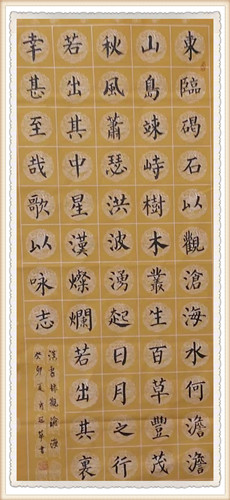 東臨碣石以觀滄海水何澹澹
山島竦峙樹木叢生百草豐茂
秋風蕭瑟洪波湧起日月之行
若出其中星漢燦爛若出其裏
幸甚至哉歌以咏志
漢曹操觀滄海
癸卯夏華書